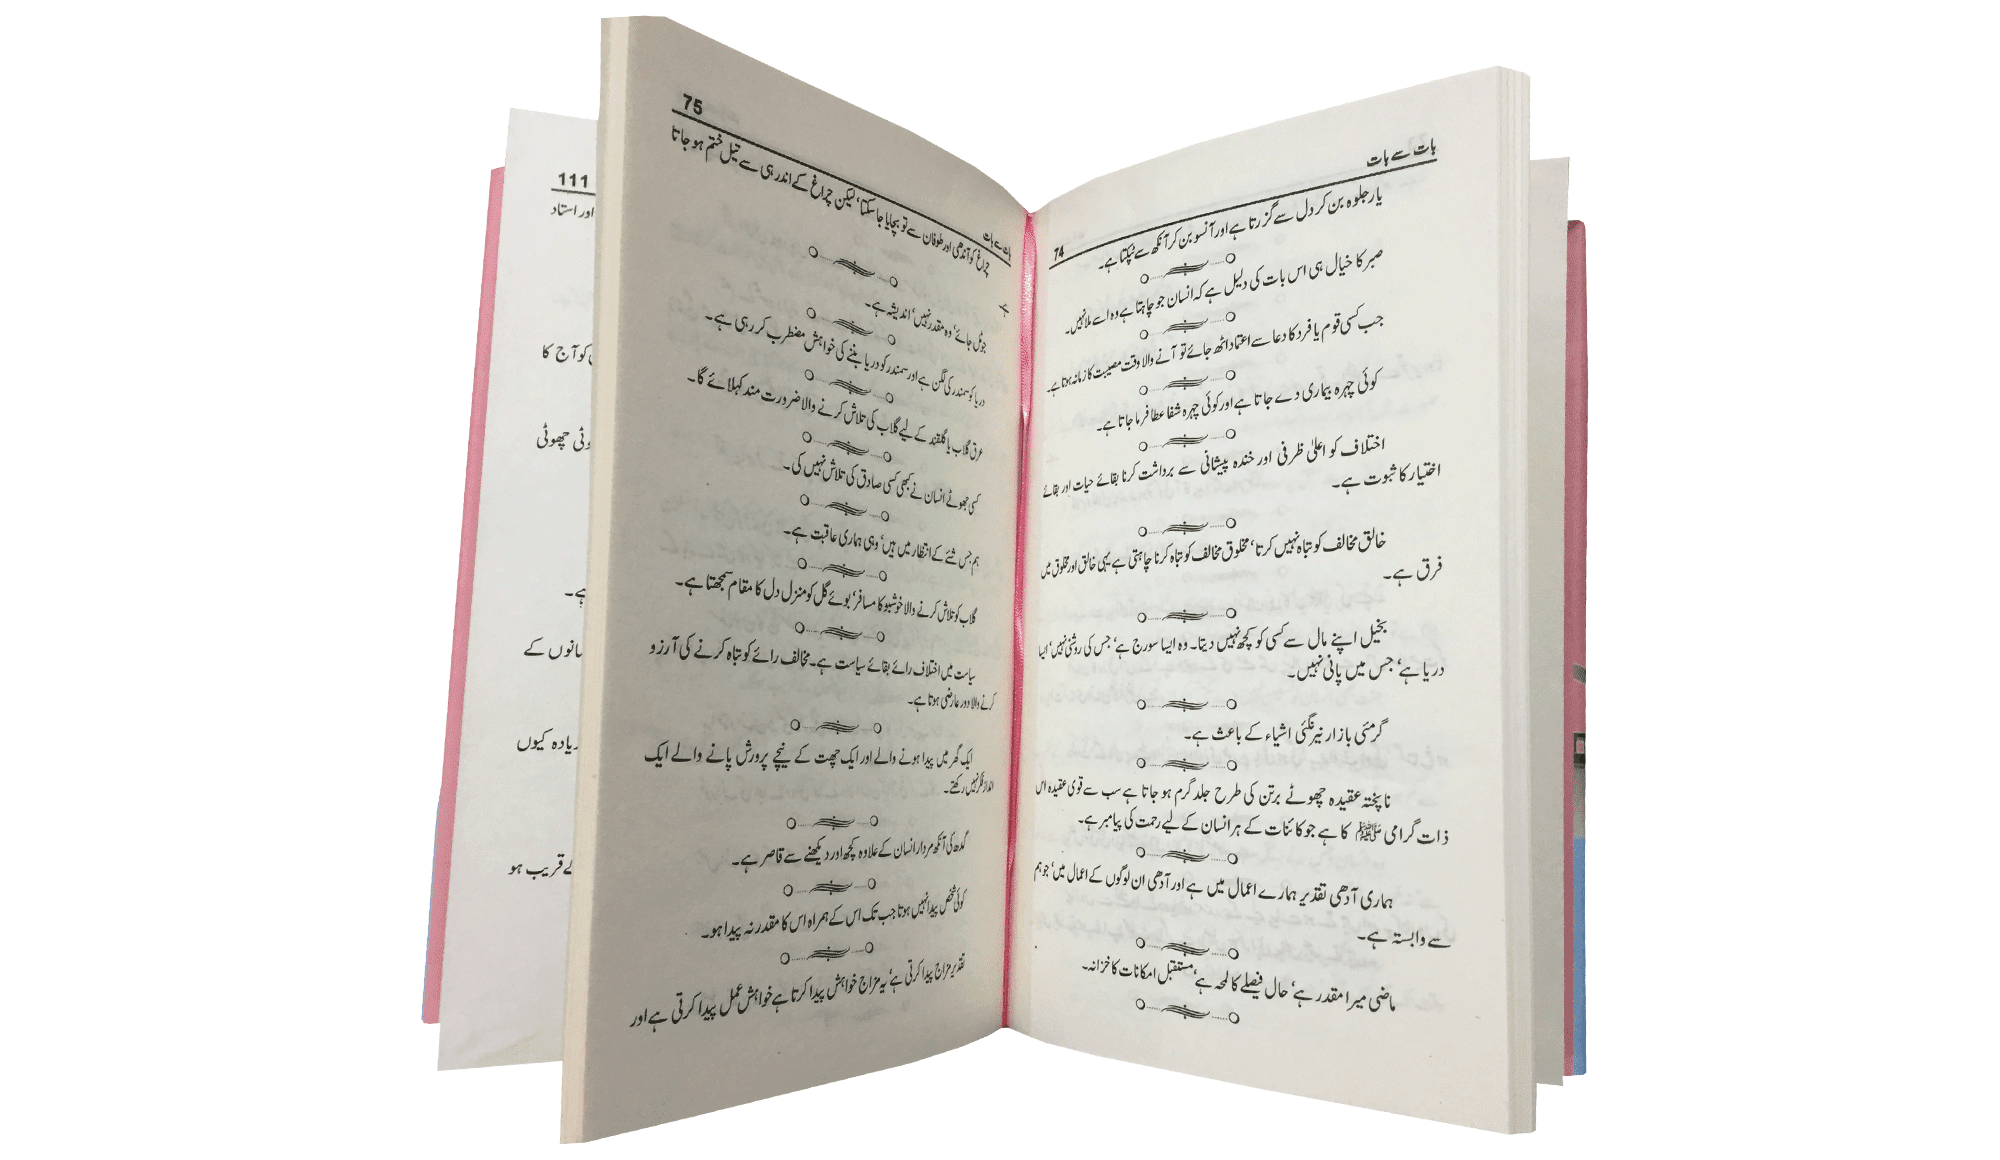 بات سے بات
74
یار جلوہ بن کر دل سے گزرتا ہے اور آنسو بن کر آنکھ سے ٹپکتا ہے۔
صبر کا خیال ہی اس بات کی دلیل ہے کہ انسان جو چاہتا ہے وہ اسے ملا نہیں۔
جب کسی قوم یا فرد کا دعا سے اعتماد اٹھ جائے تو آنے والا وقت مصیبت کا زمانہ ہوتا ہے۔
کوئی چہرہ بیماری دے جاتا ہے اور کوئی چہرہ شفا عطا فرما جاتا ہے۔
اختلاف کو اعلیٰ ظرفی اور خندہ پیشانی سے برداشت کرنا بقائے حیات اور بقائے
اختیار کا ثبوت ہے۔
خالق مخالف کو تباہ نہیں کرتا‘ مخلوق مخالف کو تباہ کرنا چاہتی ہے یہی خالق اور مخلوق میں
فرق ہے۔
بخیل اپنے مال سے کسی کو کچھ نہیں دیتا۔ وہ ایسا سورج ہے‘ جس کی روشنی نہیں‘ ایسا
دریا ہے‘ جس میں پانی نہیں۔
گرمئی بازار نیرنگئی اشیاء کے باعث ہے۔
ناپختہ عقیدہ چھوٹے برتن کی طرح جلد گرم ہو جاتا ہے سب سے قوی عقیدہ اس
ذات گرامی ﷺ کا ہے جو کائنات کے ہر انسان کے لیے رحمت کی پیامبر ہے۔
ہماری آدھی تقدیر ہمارے اعمال میں ہے اور آدھی ان لوگوں کے اعمال میں‘ جو ہم
سے وابستہ ہے۔
ماضی میرا مقدر ہے‘ حال فیصلے کا لمحہ ہے‘ مستقبل امکانات کا خزانہ۔
بات سے بات
75
چراغ کو آندھی اور طوفان سے تو بچایا جا سکتا‘ لیکن چراغ کے اندر ہی سے تیل ختم ہو جاتا
ہے
جو ٹل جائے‘ وہ مقدر نہیں‘ اندیشہ ہے۔
دریا کو سمندر کی لگن ہے اور سمندر کو دریا بننے کی خواہش مضطرب کر رہی ہے۔
عرق گلاب یا گلقند کے لیے گلاب کی تلاش کرنے والا ضرورت مند کہلائے گا۔
کسی جھوٹے انسان نے کبھی کسی صادق کی تلاش نہیں کی۔
ہم جس شئے کے انتظار میں ہیں‘ وہی ہماری عاقبت ہے۔
گلاب کو تلاش کرنے والا خوشبو کا مسافر‘ بوئے گل کو منزل دل کا مقام سمجھتا ہے۔
سیاست میں اختلاف رائے بقائے سیاست ہے۔ مخالف رائے کو تباہ کرنے کی آرزو
کرنے والا دور عارضی ہوتا ہے۔
ایک گھر میں پیدا ہونے والے اور ایک چھت کے نیچے پرورش پانے والے ایک
انداز فکر نہیں رکھتے۔
گدھ کی آنکھ مردار انسان کے علاوہ کچھ اور دیکھنے سے قاصر ہے۔
کوئی شخص پیدا نہیں ہوتا جب تک اس کے ہمراہ اس کا مقدر نہ پیدا ہو۔
تقدیر مزاج پیدا کرتی ہے‘ یہ مزاج خواہش پیدا کرتا ہے خواہش عمل پیدا کرتی ہے اور
111
اور استاد
کو آج کا
چھوٹی
ہے۔
کے
کیوں
قریب ہو